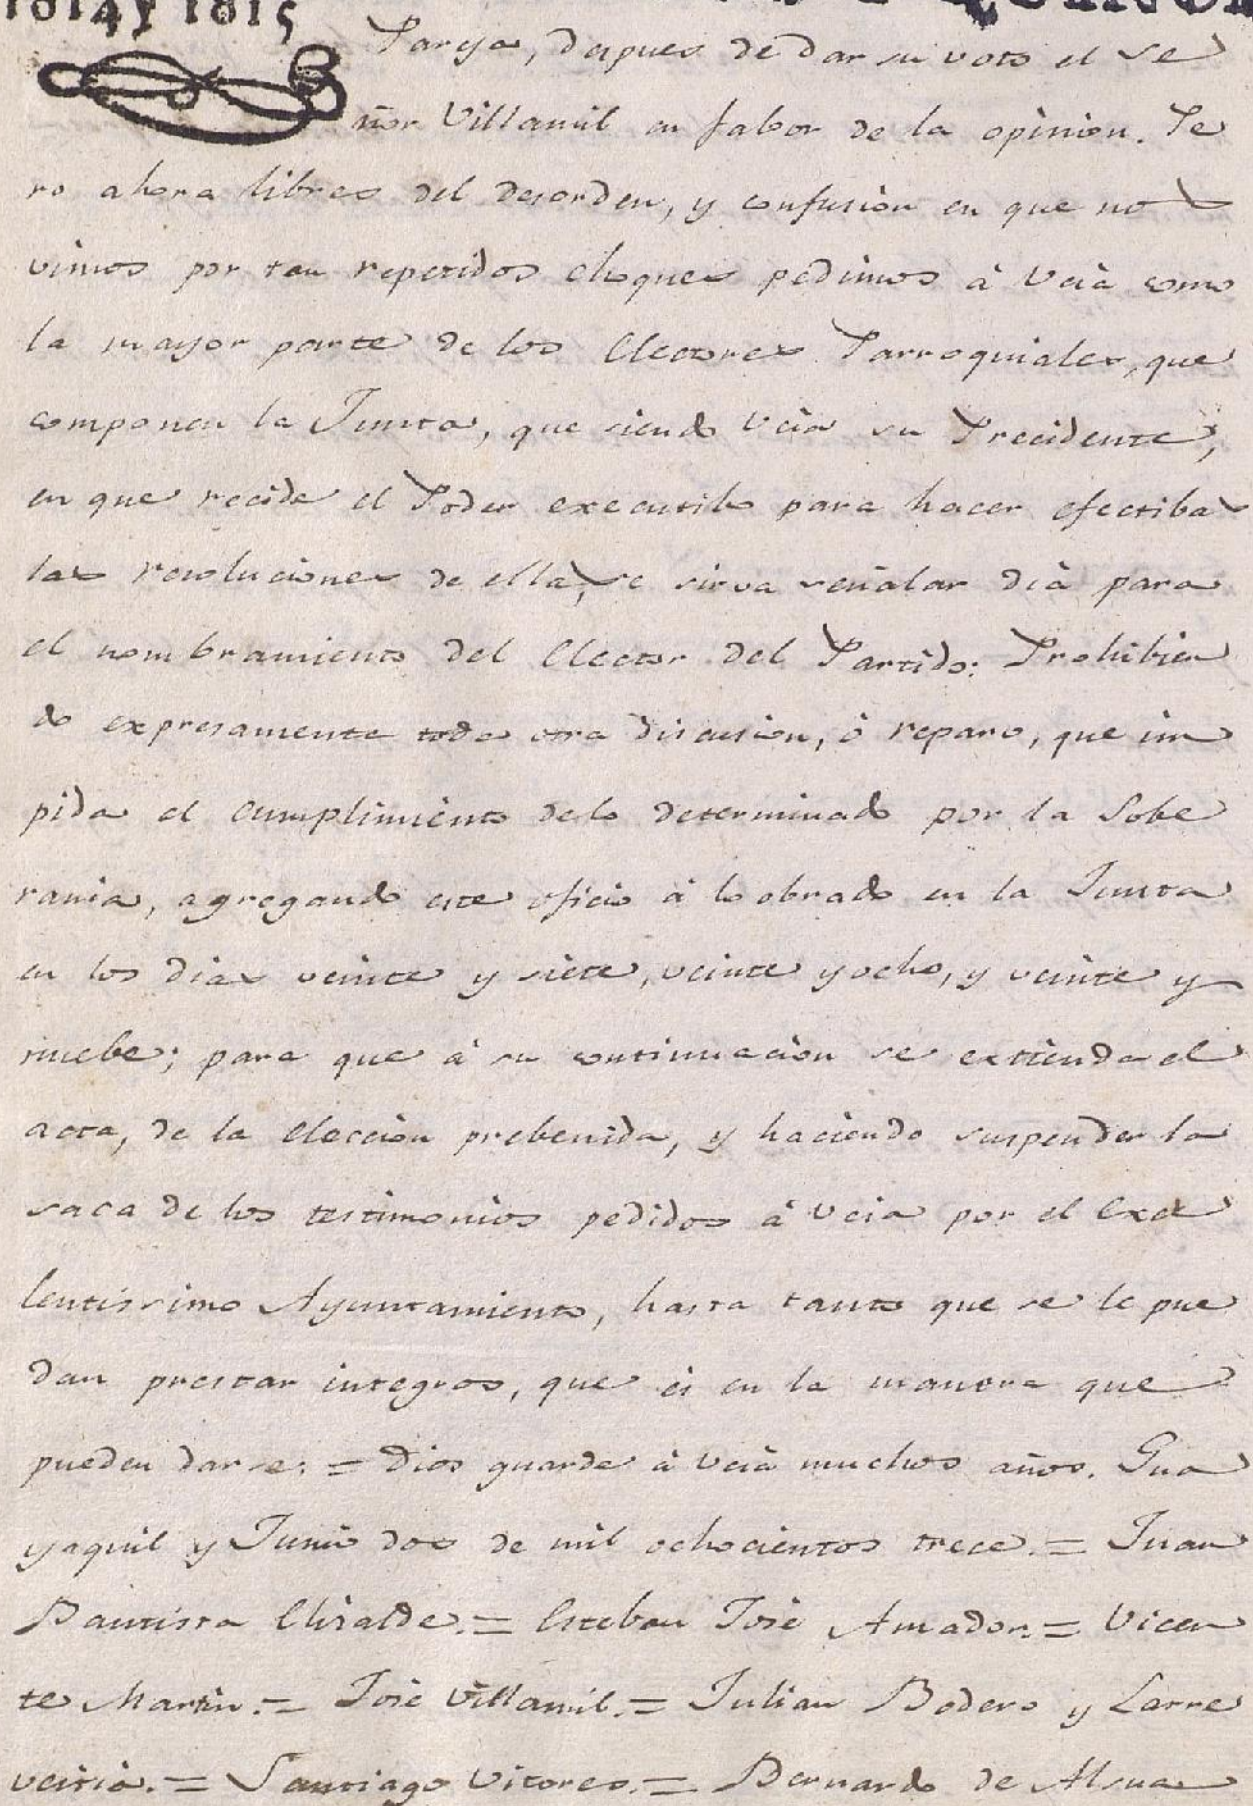 1814 y 1815
Pareja, depues de dar su voto el Se
ñor Villamil en fabor de la opinion. Pe
ro ahora libres del desorden, y confusion en que nos
vimos por tan repetidos choques pedimos à Vciâ como
la mayor parte de los Electores Parroquiales, que
componen la Junta, que siendo Vcia su Precidente,
en que recide el Poder executibo para hacer efectibas
las resoluciones de ella, se sirva señalar dia para
el nombramiento del Elector del Partido: Prohibien
do expresamente toda otra discusion, ò reparo, que im
pida el cumplimiento delo determinado por la Sobe
rania, agregando este oficio à lo obrado en la Junta
en los dias veinte y siete, veinte y ocho, y veinte y
nuebe; para que à su continuacion se extienda el
acta, de la eleccion prebenida, y haciendo suspender la
saca de los testimonios pedidos à Vcia por el Exce
lentissimo Ayuntamiento, hasta tanto que se le pue
dan prestar integros, que es en la manera que
pueden darse: = Dios guarde à Vcia muchos años. Gua
yaquil y Junio dos de mil ochocientos trece. = Juan
Bautista Elisalde. = Esteban José Amador. = Vicen
te Martin. = José Villamil. = Julian Bodero y Larre
 = Santiago Vitores. = Bernardo de Alsua